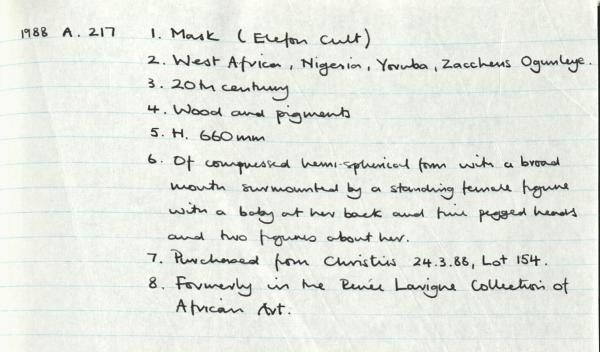 1988 A. 217 1. Mask (Elefon Cult)
2. West Africa, Nigeria, Yoruba, Zaccheus Ogunleye.
3. 20th century
4. Wood and pigments
5. H. 660mm
6. Of compressed hemi-spherical form with a broad
mouth surmounted by a standing female figure
with a baby at her back and pegged heads
and two figures about her.
7. Purchased from Christies 24.3.88, Lot 154.
8. Formerly in the Renée Lavigne Collection of
African Art.